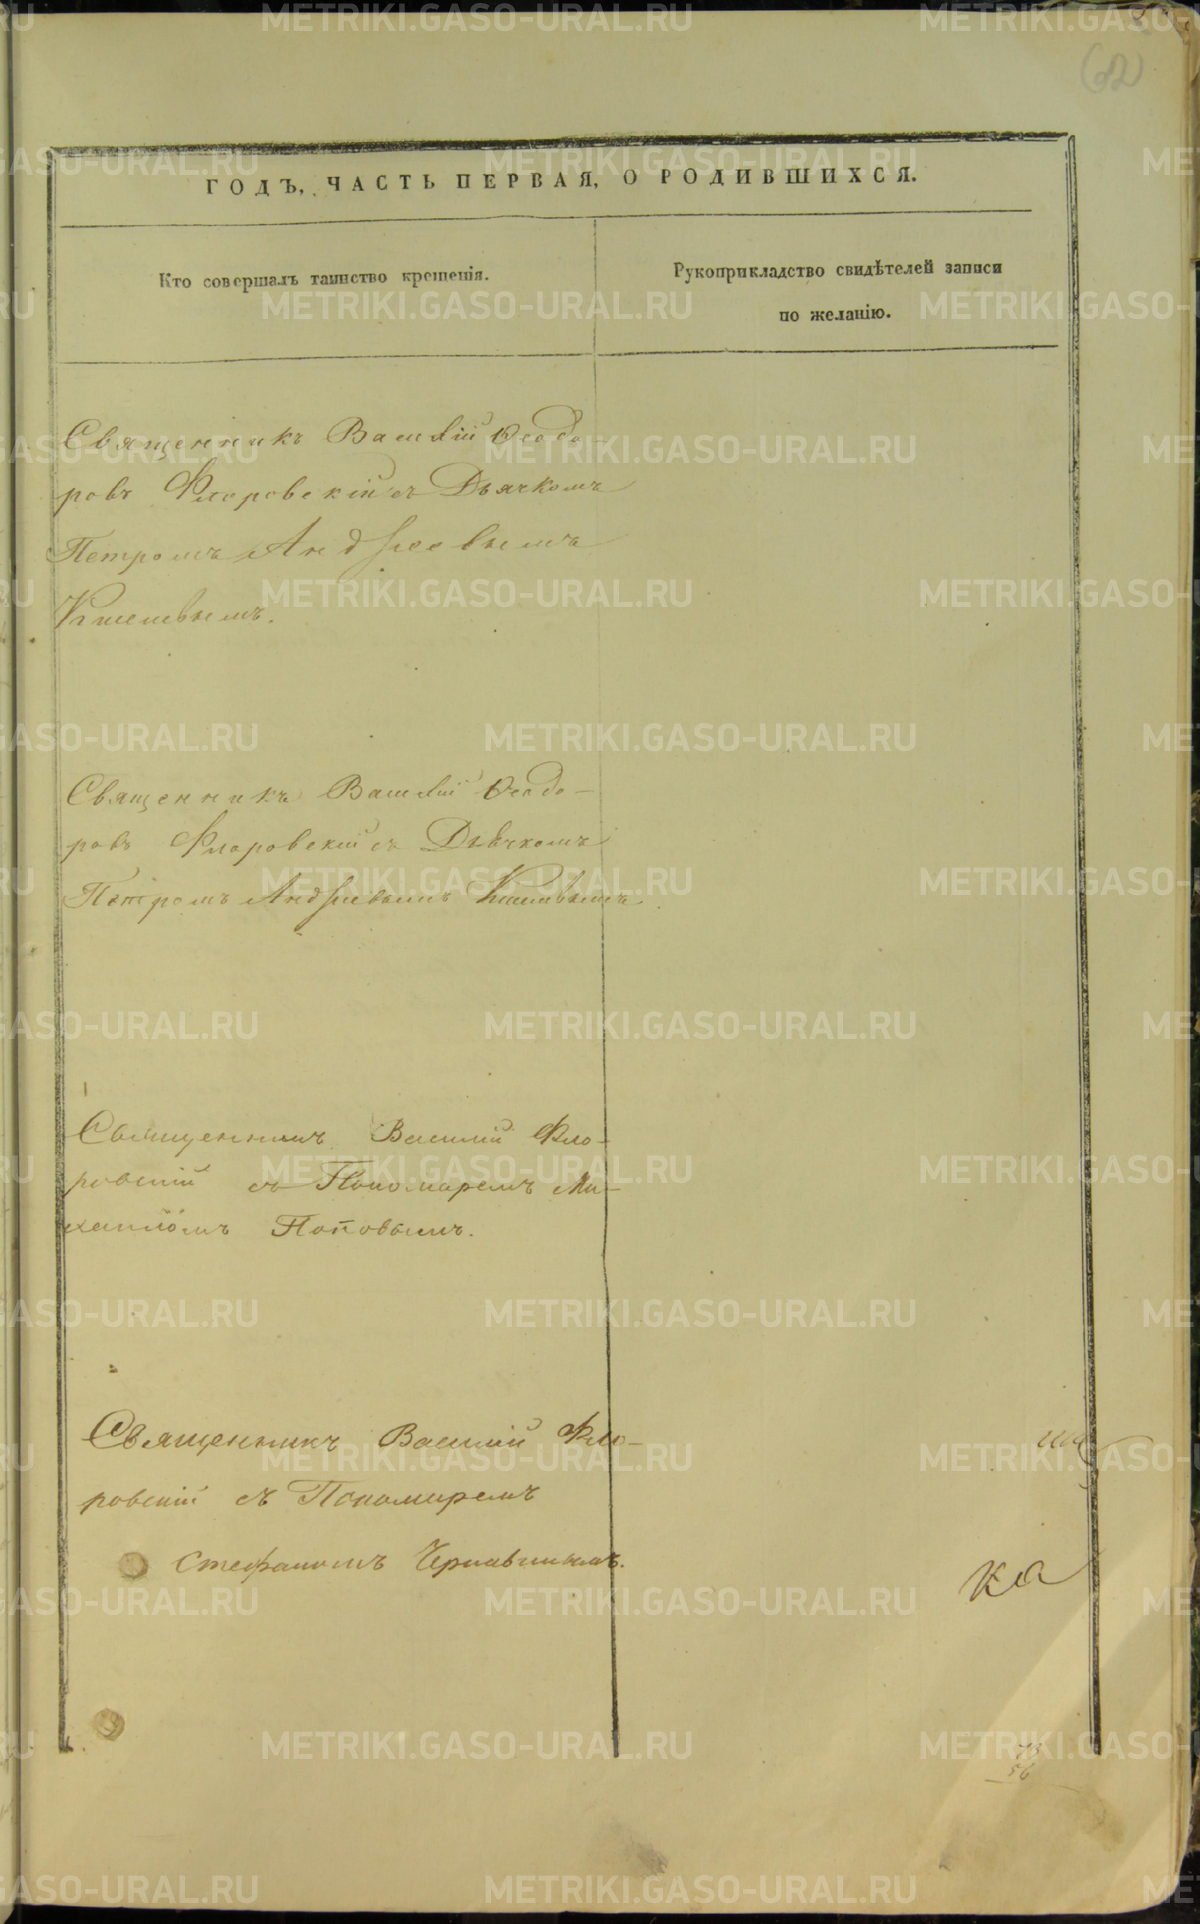 ГОДЪ, ЧАСТЬ ПЕРВАЯ, О РОДИВШИХСЯ.
Кто совершалъ таинство крещенія.
Рукоприкладство свидѣтелей записи
по желанію.
Священникъ Василій Ѳеодо-
ровъ Флоровскій съ Дьячкомъ
Петромъ Андреевымъ
Священникъ Василій Ѳеодо-
ровъ Флоровскій съ Дьячкомъ
Петромъ Андреевымъ
Священникъ Василій Фло-
ровскій съ Пономаремъ Ми-
хаиломъ Поповымъ.
Священникъ Василій Фло-
ровскій съ Пономаремъ
Стефаномъ
ка
METRIKI.GASO-URAL.RU